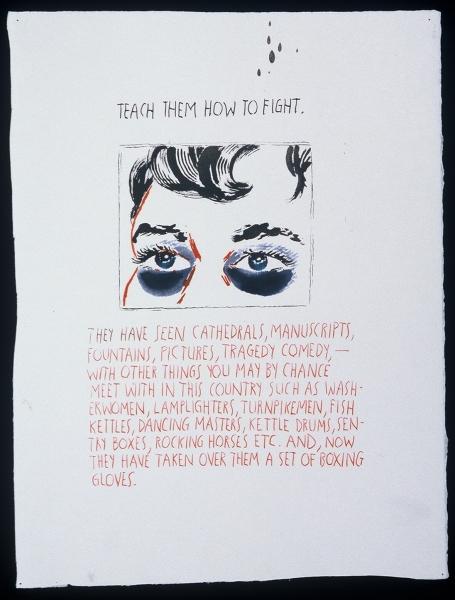 TEACH THEM HOW TO FIGHT.
THEY HAVE SEEN CATHEDRALS, MANUSCRIPTS,
FOUNTAINS, PICTURES, TRAGEDY COMEDY, —
WITH OTHER THINGS YOU MAY BY CHANCE
MEET WITH IN THIS COUNTRY SUCH AS WASH-
ERWOMEN, LAMPLIGHTERS, TURNPIKEMEN, FISH
KETTLES, DANCING MASTERS, KETTLE DRUMS, SEN-
TRY BOXES, ROCKING HORSES ETC. AND, NOW
THEY HAVE TAKEN OVER THEM A SET OF BOXING
GLOVES.